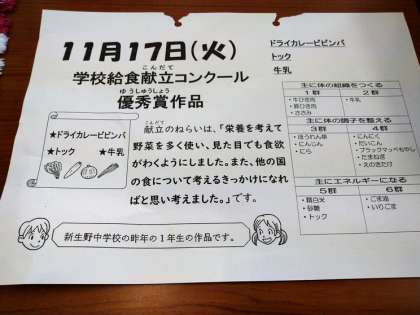 11月17日(火)
こんだて
学校給食献立コンクール
ゆうしゅうしょう
優秀賞作品
★ドライカレービビンバ
★トック ★牛乳
こんだて
献立のねらいは、「栄養を考えて
野菜を多く使い、見た目でも食欲
がわくようにしました。また、他の国
の食について考えるきっかけになれ
ばと思い考えました。」です。
新生野中学校の昨年の1年生の作品です。
ドライカレービビンバ
トック
牛乳
主に体の組織をつくる
1群 2群
・牛ひき肉 ・牛乳
・豚ひき肉
・ささみ
主に体の調子を整える
3群 4群
・ほうれん草 ・にんにく
・にんじん ・だいこん
・にら ・ブラックマッペもやし
・たまねぎ
・えのきたけ
主にエネルギーになる
5群 6群
・精白米 ・ごま油
・砂糖 ・いりごま
・トック